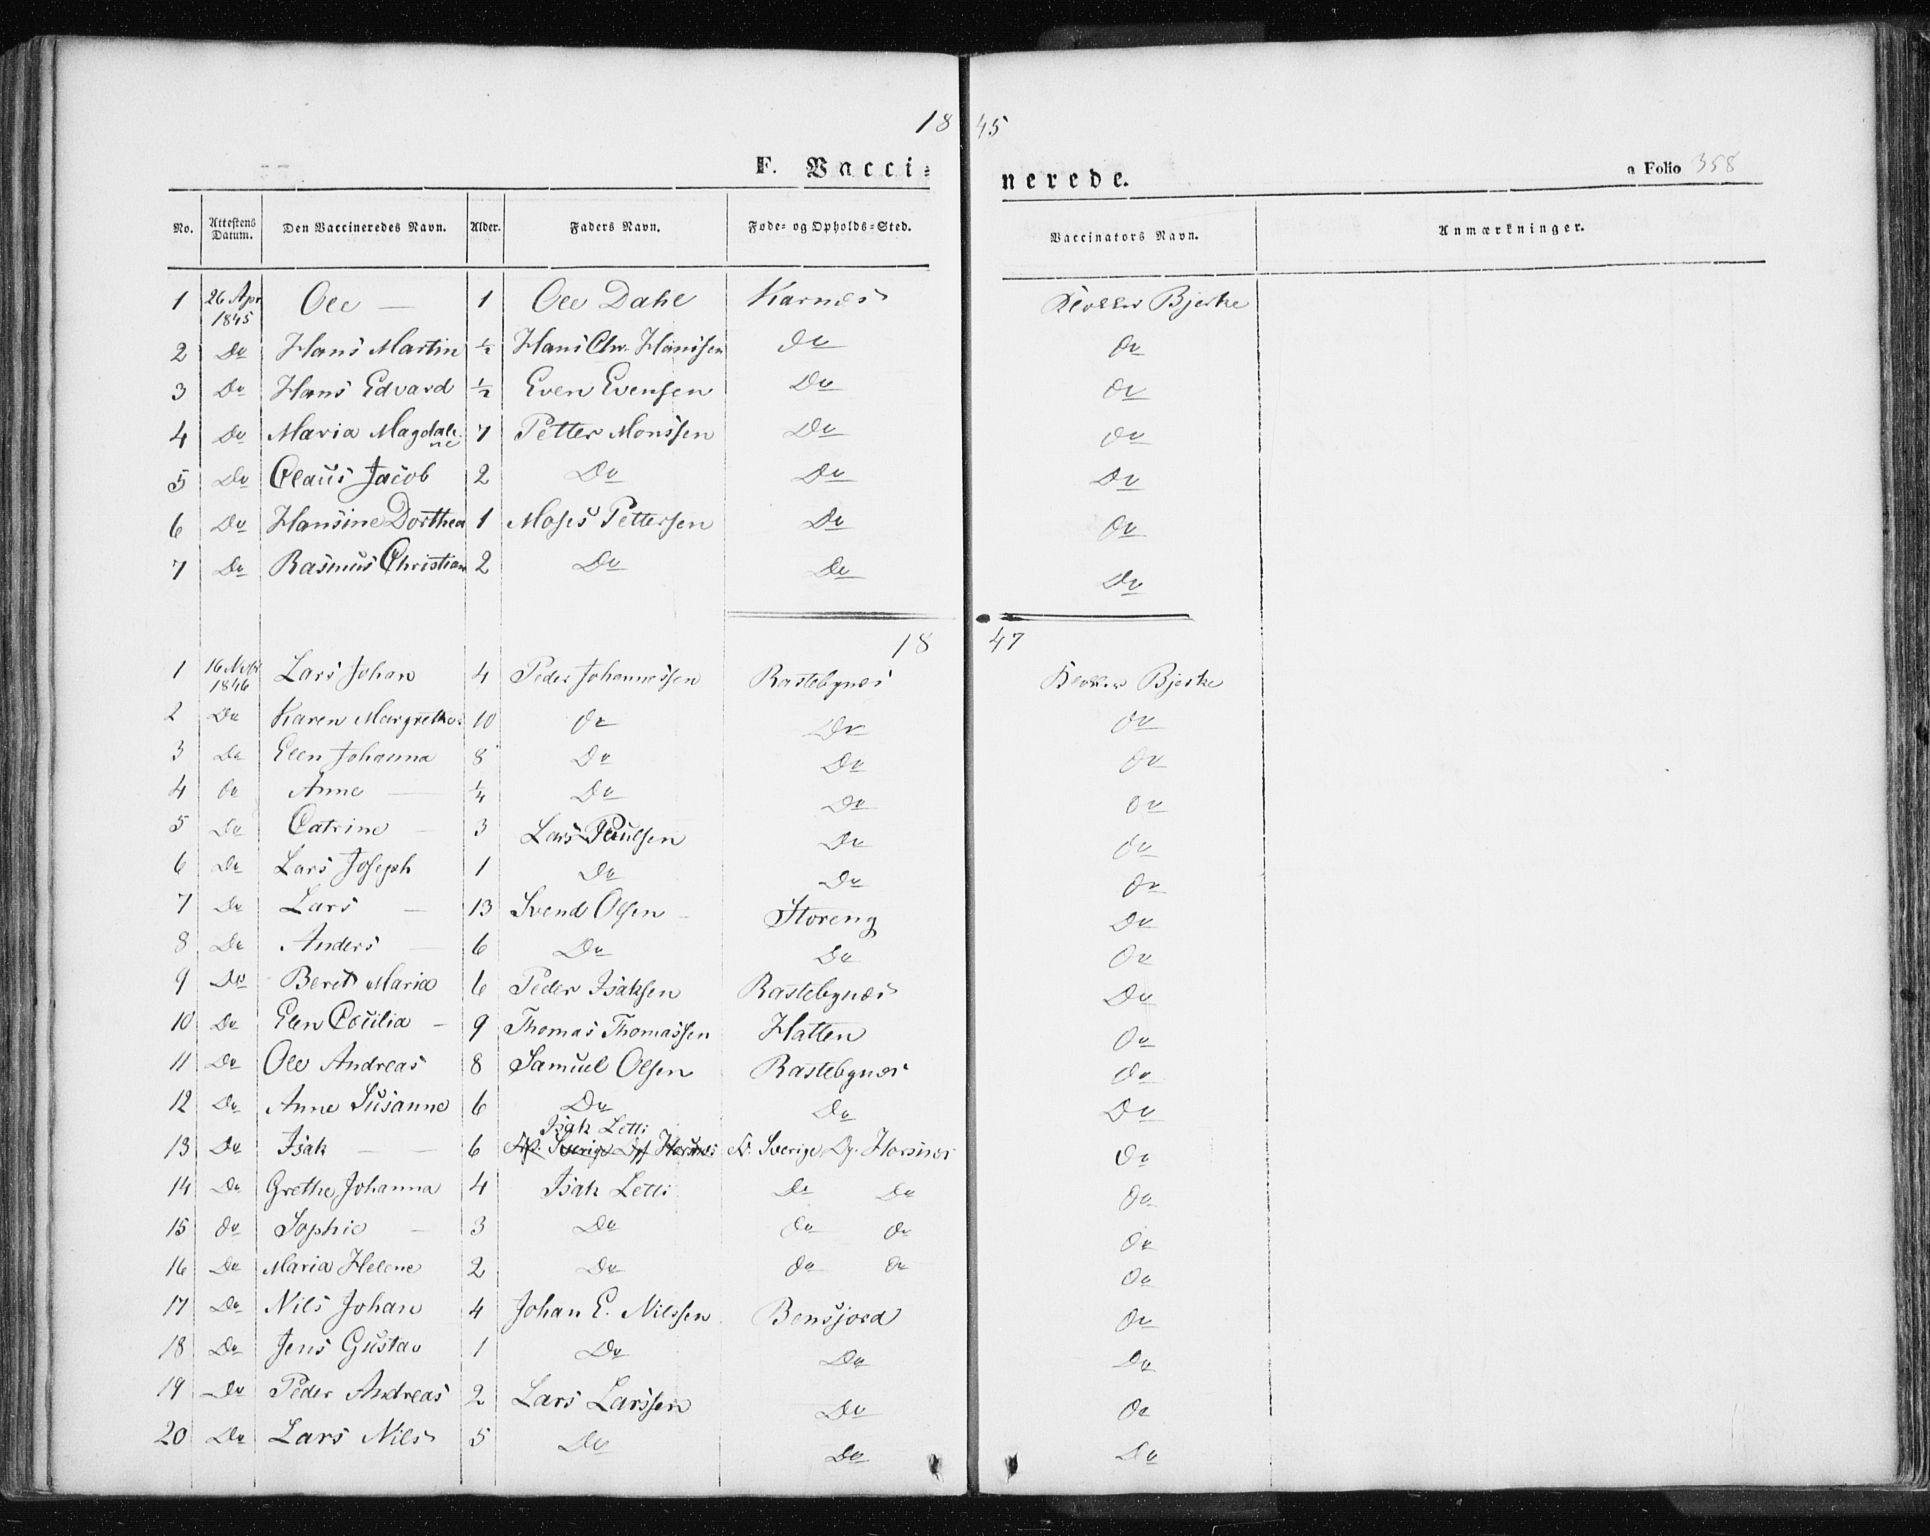 1845
F. Vaccinerede.
a Folio 358
No. Attestens Datum. Den Vaccineredes Navn. Alder. Faders Navn. Føde- og Opholds-Sted. Vaccinators Navn. Anmærkninger.
1 26 Apr 1845 Ole — 1 Ole Dahl Karnæs Klokker Bjerke
2 Do Hans Martin ½ Hans Chr. Hanssen Do Do
3 Do Hans Edvard ½ Even Evensen Do Do
4 Do Maria Magdalene 7 Petter Monssen Do Do
5 Do Claus Jacob 2 Do Do Do
6 Do Hansine Dorthea 1 Moses Pettersen Do Do
7 Do Rasmus Christian 2 Do Do Do
1847
1 16 Novbr 1846 Lars Johan 4 Peder Johannessen Rastebynes Klokker Bjerke
2 Do Karen Margrethe 10 Do Do Do
3 Do Elen Johanna 8 Do Do Do
4 Do Anne — ¼ Do Do Do
5 Do Catrine — 3 Lars Paulsen Do Do
6 Do Lars Joseph 1 Do Do Do
7 Do Lars — 13 Svend Olsen — Storeng Do
8 Do Anders — 6 Do Do Do
9 Do Beret Maria 6 Peder Isaksen Rastebynæs Do
10 Do Elen Cecilia — 9 Thomas Thomassen Hatten Do
11 Do Ole Andreas 8 Samuel Olsen Rastebynæs Do
12 Do Anne Susanne 6 Do Do Do
13 Do Isak — — 6 Isak Letti Sverige Horsnæs Do
14 Do Grethe Johanna 4 Isak Letti Do Do Do
15 Do Sophie — 3 Do Do Do Do
16 Do Maria Helene 2 Do Do Do Do
17 Do Nils Johan 4 Johan E. Nilssen Bensjord Do
18 Do Jens Gustav 1 Do Do Do
19 Do Peder Andreas 2 Lars Larssen Do Do
20 Do Lars Nils 5 Do Do Do